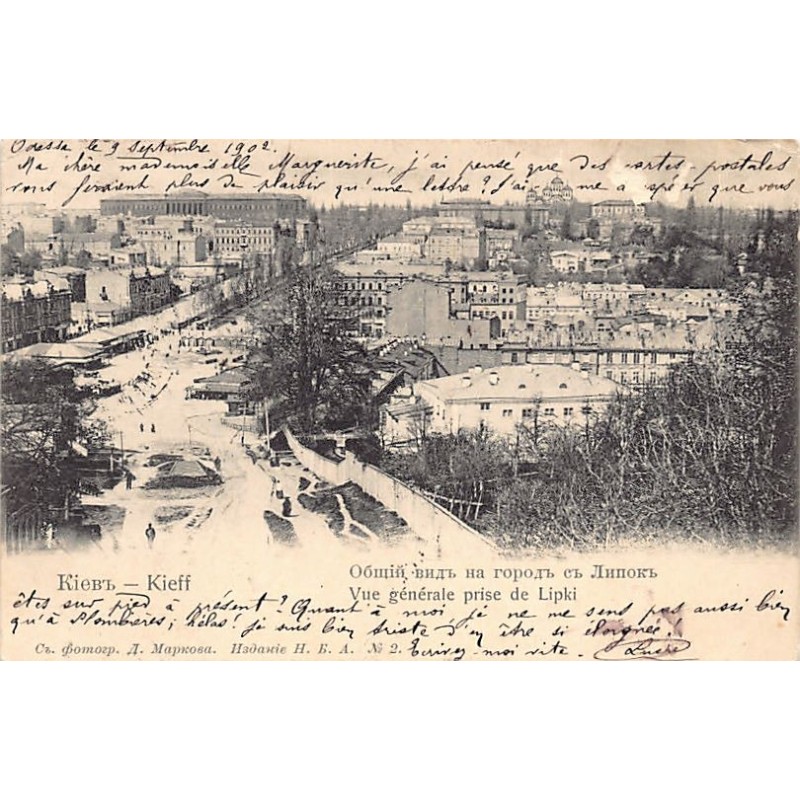 Odessa le 9 Septembre 1902.
Ma chère mademoiselle Marguerite, j'ai pensé que des cartes-postales
vous feraient plus de plaisir qu'une lettre? J'ai me a espérer que vous
Кіевъ — Kieff
Общій видъ на городъ съ Липокъ
Vue générale prise de Lipki
êtes sur pied à présent? Quant à moi je ne me sens pas aussi bien
qu'à Plombères; hélas! je suis bien triste d'en être si éloignée!
Съ фотогр. Д. Маркова. Изданіе Н. Б. А. № 2. Ecrivez-moi vite.